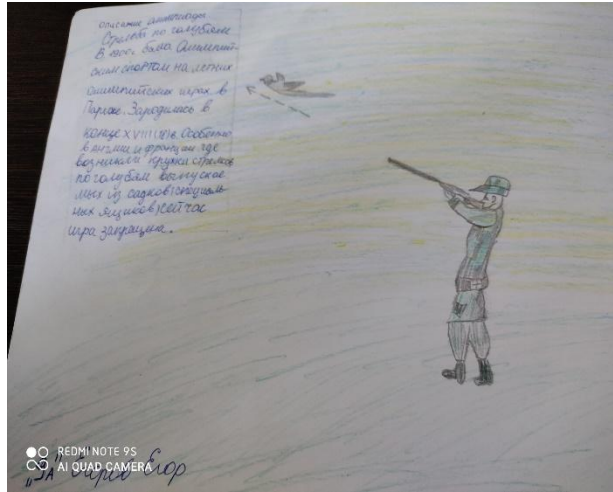 описание олимпиады
Стрельба по голубям
В 1900г. была Олимпий-
ским спортом на летних
олимпийских играх в
Париже. Зародилась в
конце XVIII (18)в. Особенно
в англии и франции, где
возникли кружки стрелков
по голубям выпускае
мых из садков (специаль-
ных ящиков) сейчас
игра запрещена.
REDMI NOTE 9S
AI QUAD CAMERA
Егор